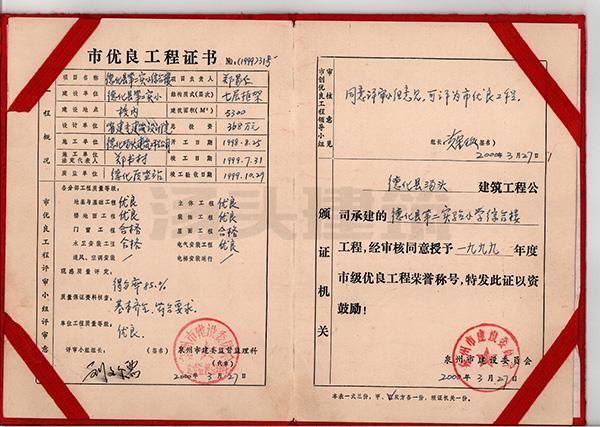 市优良工程证书 №:(1999)315
工程概况
项目名称 德化县第二实小综合楼 项目负责人
建设单位 德化县第二实小 结构形式(层次) 七层框架
建设地点 校内 建筑面积(M²) 5300
设计单位 总投资 368万元
施工单位 开工日期 1998.8.25
施工单位法定代表人 郑书村 竣工日期 1999.7.31
质监单位 德化质监站 竣工验收日期 1999.10.29
市优良工程评审小组评审意
各分部工程质量等级:
地基与基础工程 优良 主体工程 优良
楼地面工程 优良 装饰工程 优良
门窗工程 合格 屋面工程 合格
水卫安装工程 合格 电气安装工程 优良
通风、空调安装 / 电梯安装运行 /
观感质量评定:
得分率85.%
质量保证资料核查:
基本齐全,符合要求.
单位工程质量等级:
优良.
评审小组组长: (签名) 泉州市建委监督监理科
(代章)
2000年3月27日
市创优良工程领导小组
审核意见
同意评审小组意见,可评为市优良工程.
组长: (签名)
2000年3月27日
颁证机关
德化县汤头 建筑工程公
司承建的 德化县第二实验小学综合楼
工程,经审核同意授予一九九九年度
市级优良工程荣誉称号,特发此证以资
鼓励!
泉州市建设委员会
2000年3月27日
本表一式三份,甲、乙双方各一份,颁证机关一份。